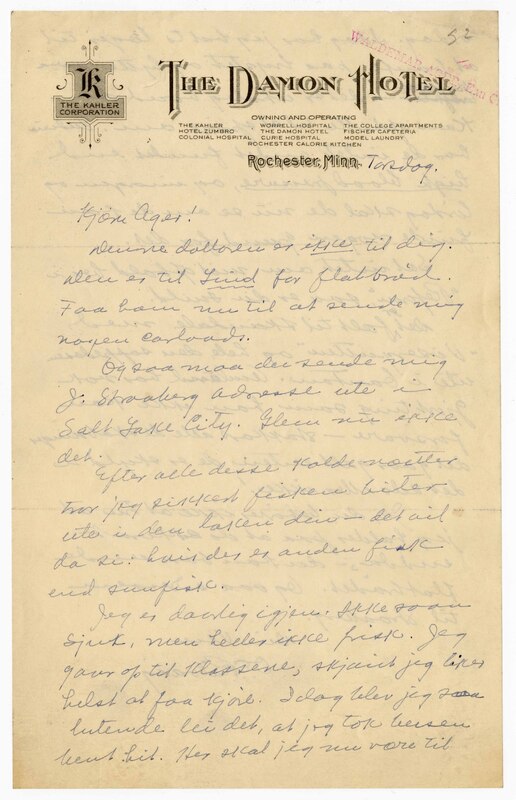 52
WALDEMAR AGER, Eau C
K
THE KAHLER
CORPORATION
THE DAMON HOTEL
OWNING AND OPERATING
THE KAHLER WORRELL HOSPITAL THE COLLEGE APARTMENTS
HOTEL ZUMBRO THE DAMON HOTEL FISCHER CAFETERIA
COLONIAL HOSPITAL CURIE HOSPITAL MODEL LAUNDRY
ROCHESTER CALORIE KITCHEN
Rochester, Minn. Torsdag.
Kjære Ager!
Denne dollaren er ikke til dig.
Den er til Lind for flatbrød.
Faa ham nu til at sende mig
nogen carloads.
Ogsaa maa du sende mig
J. Strøoberg adresse ute i
Salt Lake City. Glem nu ikke
det.
Efter alle desse kolde nætter
tror jeg sikkert fisken biter
ute i den laken din — det vil
da si: hvis der er anden fisk
end sunfisk.
Jeg er daarlig igjen. Ikke saan
sjuk, men heller ikke frisk. Jeg
gaar op til klassene, skjønt jeg liker
helst at faa kjøre. Idag blev jeg saa
lutende lei det, at jeg tok bussen
bent hit. Her skal jeg nu være til